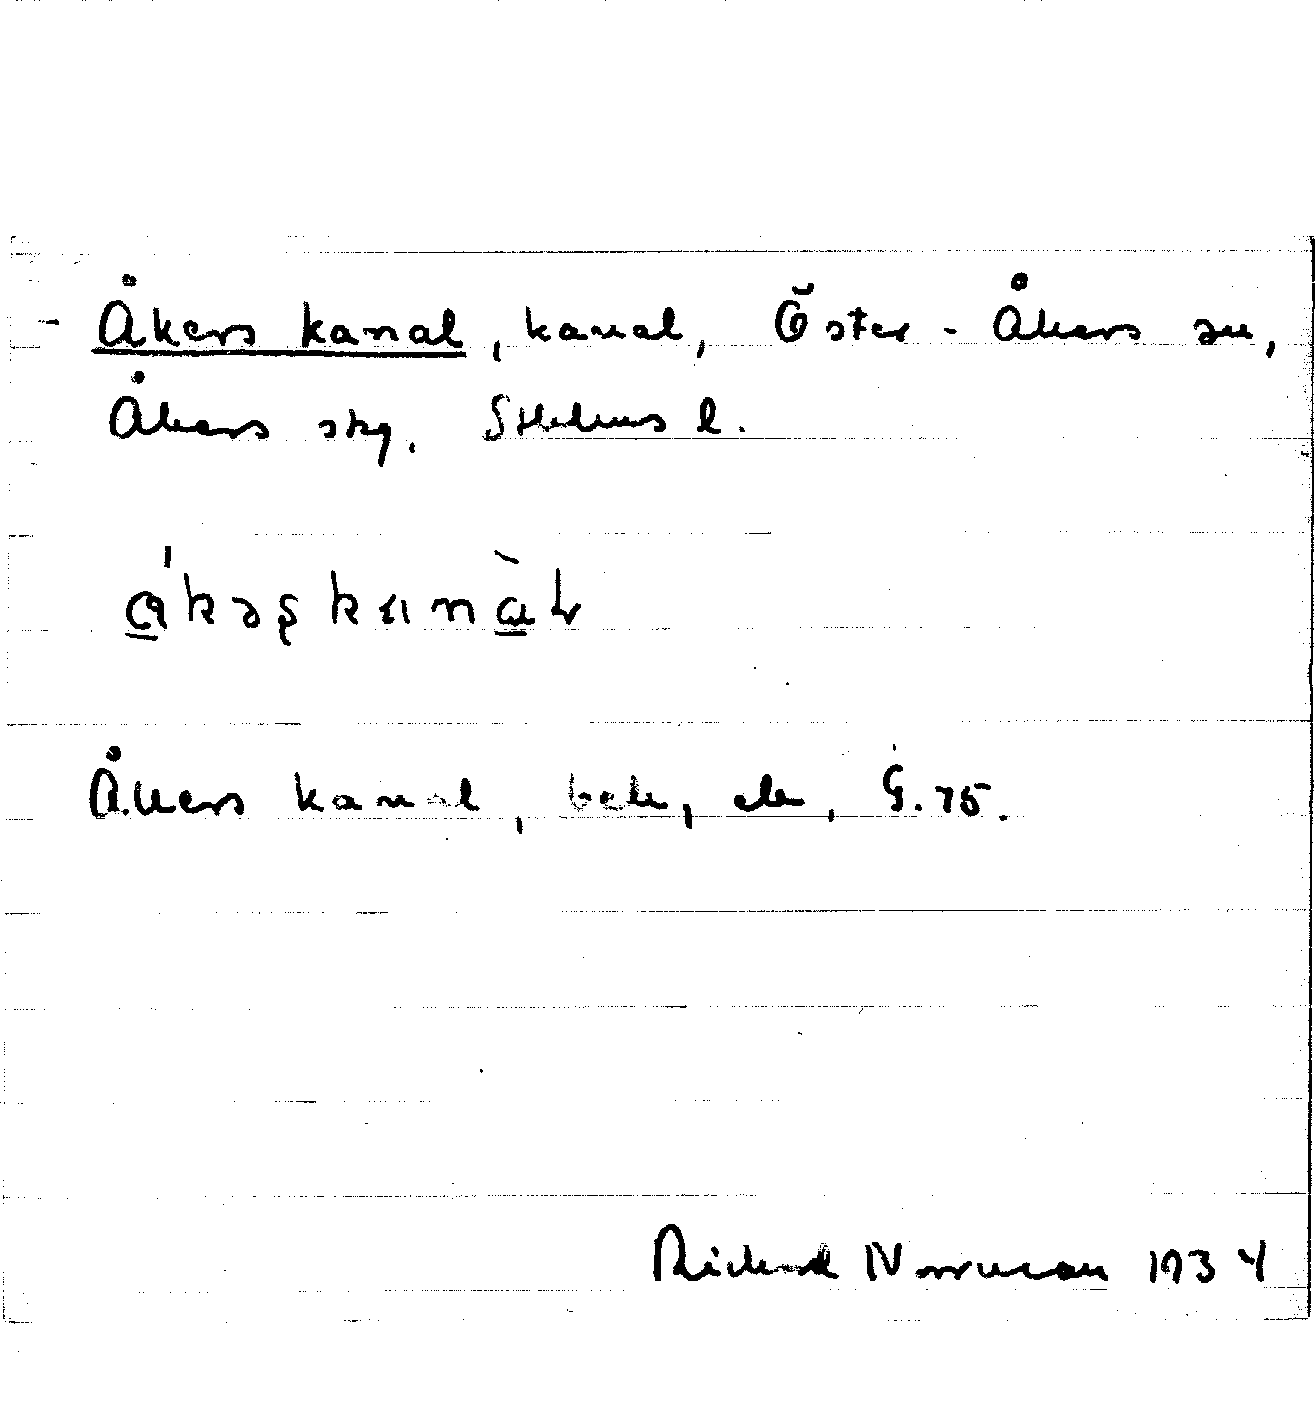 Åkers kanal, kanal, Öster-Åkers sn,
Åkers skg. Sthlms l.
Åkers kanal, bek, G. 75.
Richard Norrman 1934